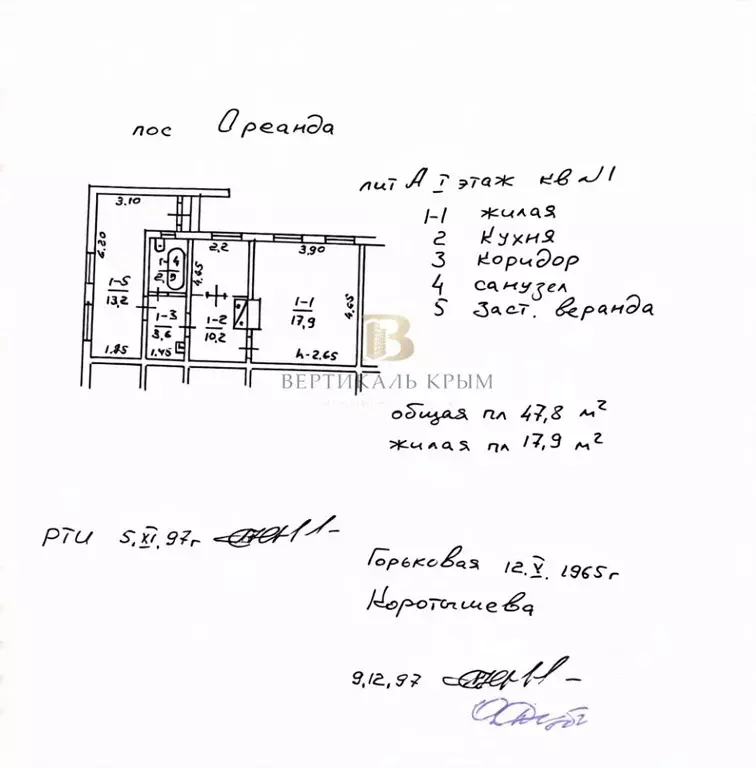 пос Ореанда
лит А I этаж кв №1
1-1 жилая
2 Кухня
3 коридор
4 санузел
5 Заст. веранда
3.10
6.20
1-5
13,2
1.85
4
1-3
3,6
1.45
2,2
4.65
1-2
10,2
3,90
1-1
17,9
4,65
h-2.65
ВЕРТИКАЛЬ КРЫМ
общая пл 47,8 м²
жилая пл 17,9 м²
РТИ 5.XI.97г
Горьковая 12.V.1965г
Коротышева
9,12,97